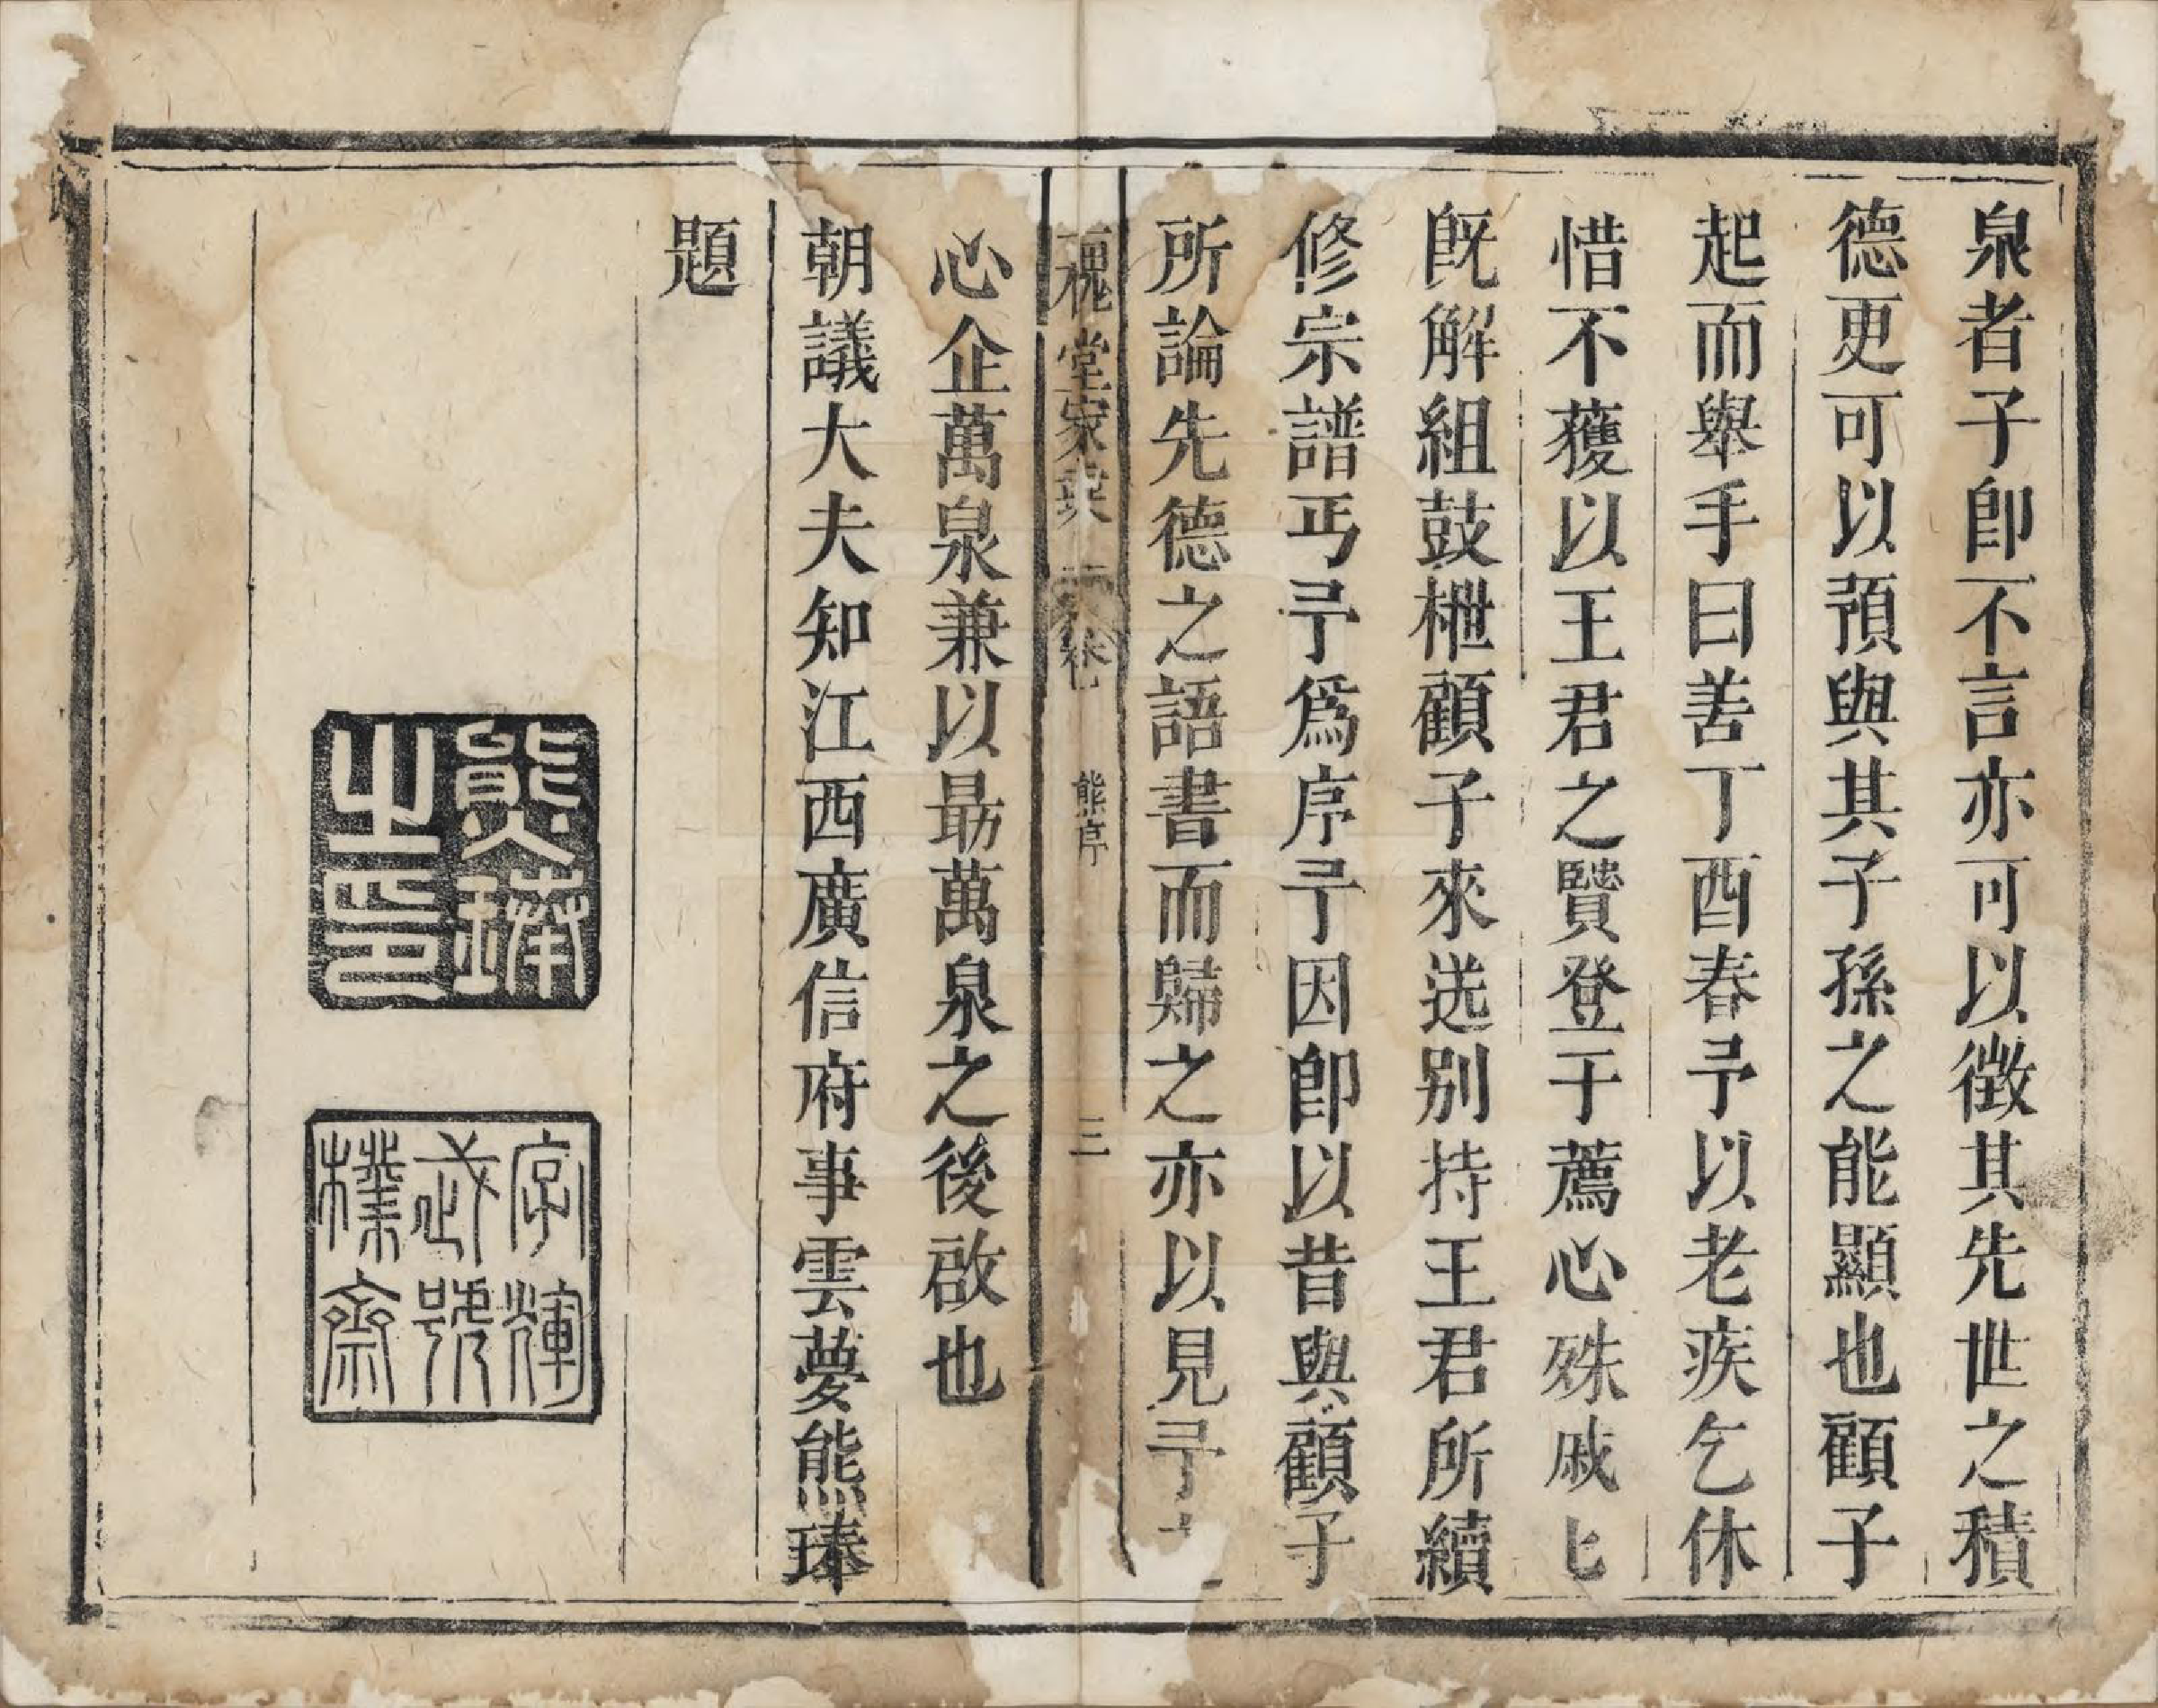 泉者子卽不言亦可以徵其先世之積
德更可以預與其子孫之能顯也顧子
起而舉手曰善丁酉春予以老疾乞休
惜不獲以王君之賢登于薦心殊戚匕
旣解組鼓枻顧子來送别持王君所續
修宗譜丐予爲序予因卽以昔與顧子
所論先德之語書而歸之亦以見予
槐堂家乘
卷七
熊序
三
心企萬泉兼以朂萬泉之後啟也
朝議大夫知江西廣信府事雲夢熊瑧
題
熊瑧
之印
字輝
武號
樸齋